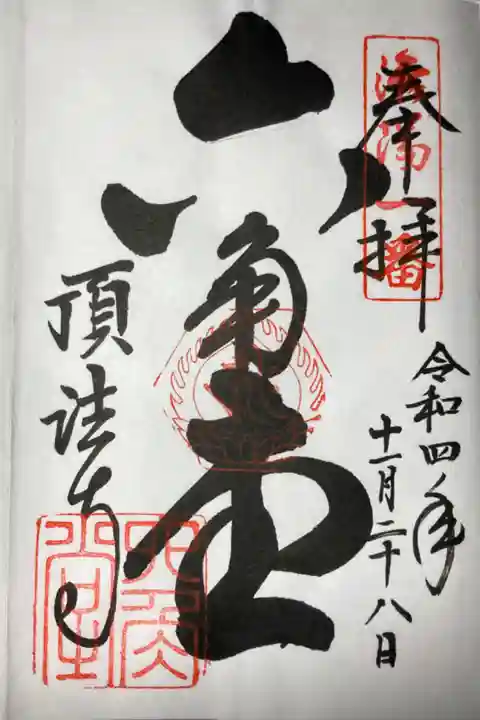 奉拝
令和四年
十一月二十八日
六角堂
頂法寺
六角堂